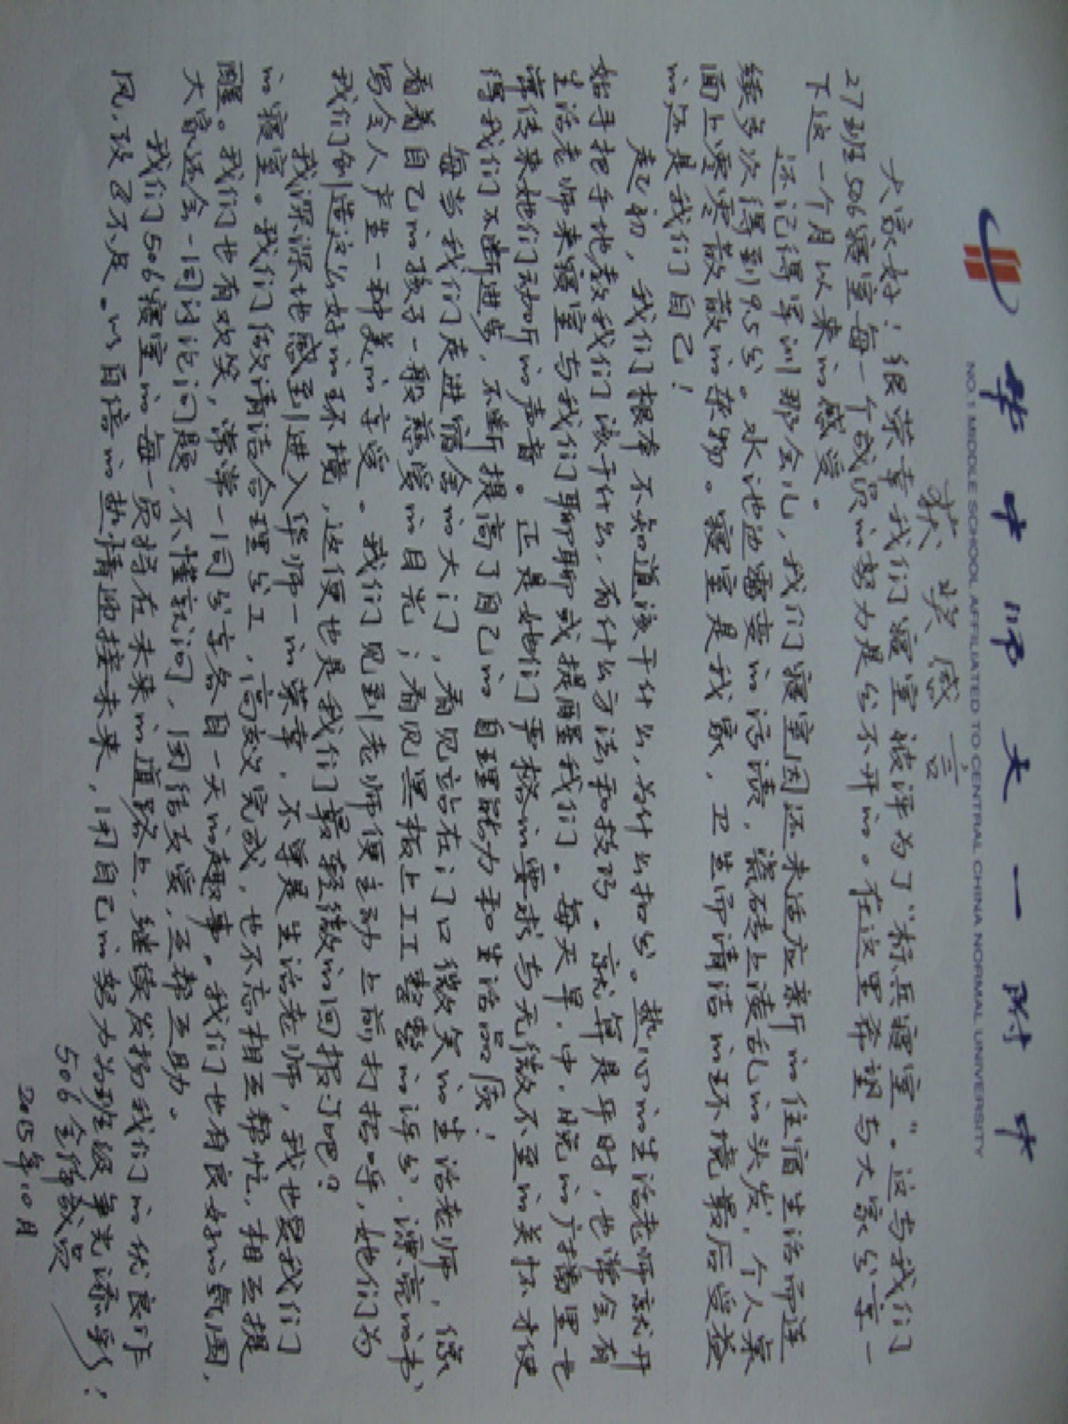 华中师大一附中
NO.1 MIDDLE SCHOOL AFFILIATED TO CENTRAL CHINA NORMAL UNIVERSITY
获奖感言
大家好：很荣幸我们寝室被评为了“标兵寝室”。这与我们
27班506寝室每一个成员的努力是分不开的。在这里希望与大家分享一
下这一个月以来的感受。
还记得军训那会儿，我们寝室因还未适应新的住宿生活而连
续多次得到95分。水池边需要的污渍，瓷砖上凌乱的头发，个人桌
面上零零散散的杂物。寝室是我家，卫生而清洁的环境最后受益
的还是我们自己！
起初，我们根本不知道该干什么，为什么扣分。热心的生活老师就开
始手把手地教我们该干什么，有什么方法和技巧。就算是平时，也常会有
生活老师来寝室与我们聊聊或提醒我们。每天早、中、晚的广播里也
常传来她们动听的声音。正是她们严格的要求与无微不至的关怀才使
得我们不断进步，不断提高了自己的自理能力和生活品质！
每当我们走进宿舍的大门，看见站在门口微笑的生活老师，像
看着自己的孩子一般慈爱的目光；看见黑板上工工整整的评分，漂亮的书
写令人产生一种美的享受。我们见到老师便主动上前打招呼，她们为
我们创造这么好的环境，这便也是我们最轻微的回报了吧？
我深深地感到进入华师一的荣幸，不单是生活老师，我也爱我们
的寝室。我们做清洁合理分工，高效完成，也不忘相互帮忙，相互提
醒。我们也有欢笑，常常一同分享各自一天的趣事。我们也有良好的氛围，
大家还会一同讨论问题，不懂就问，团结友爱，互帮互助。
我们506寝室的每一员将在未来的道路上，继续发扬我们的优良作
风，改正不足。以百倍的热情迎接未来，用自己的努力为班级争光添彩！
506全体成员
2015年10月